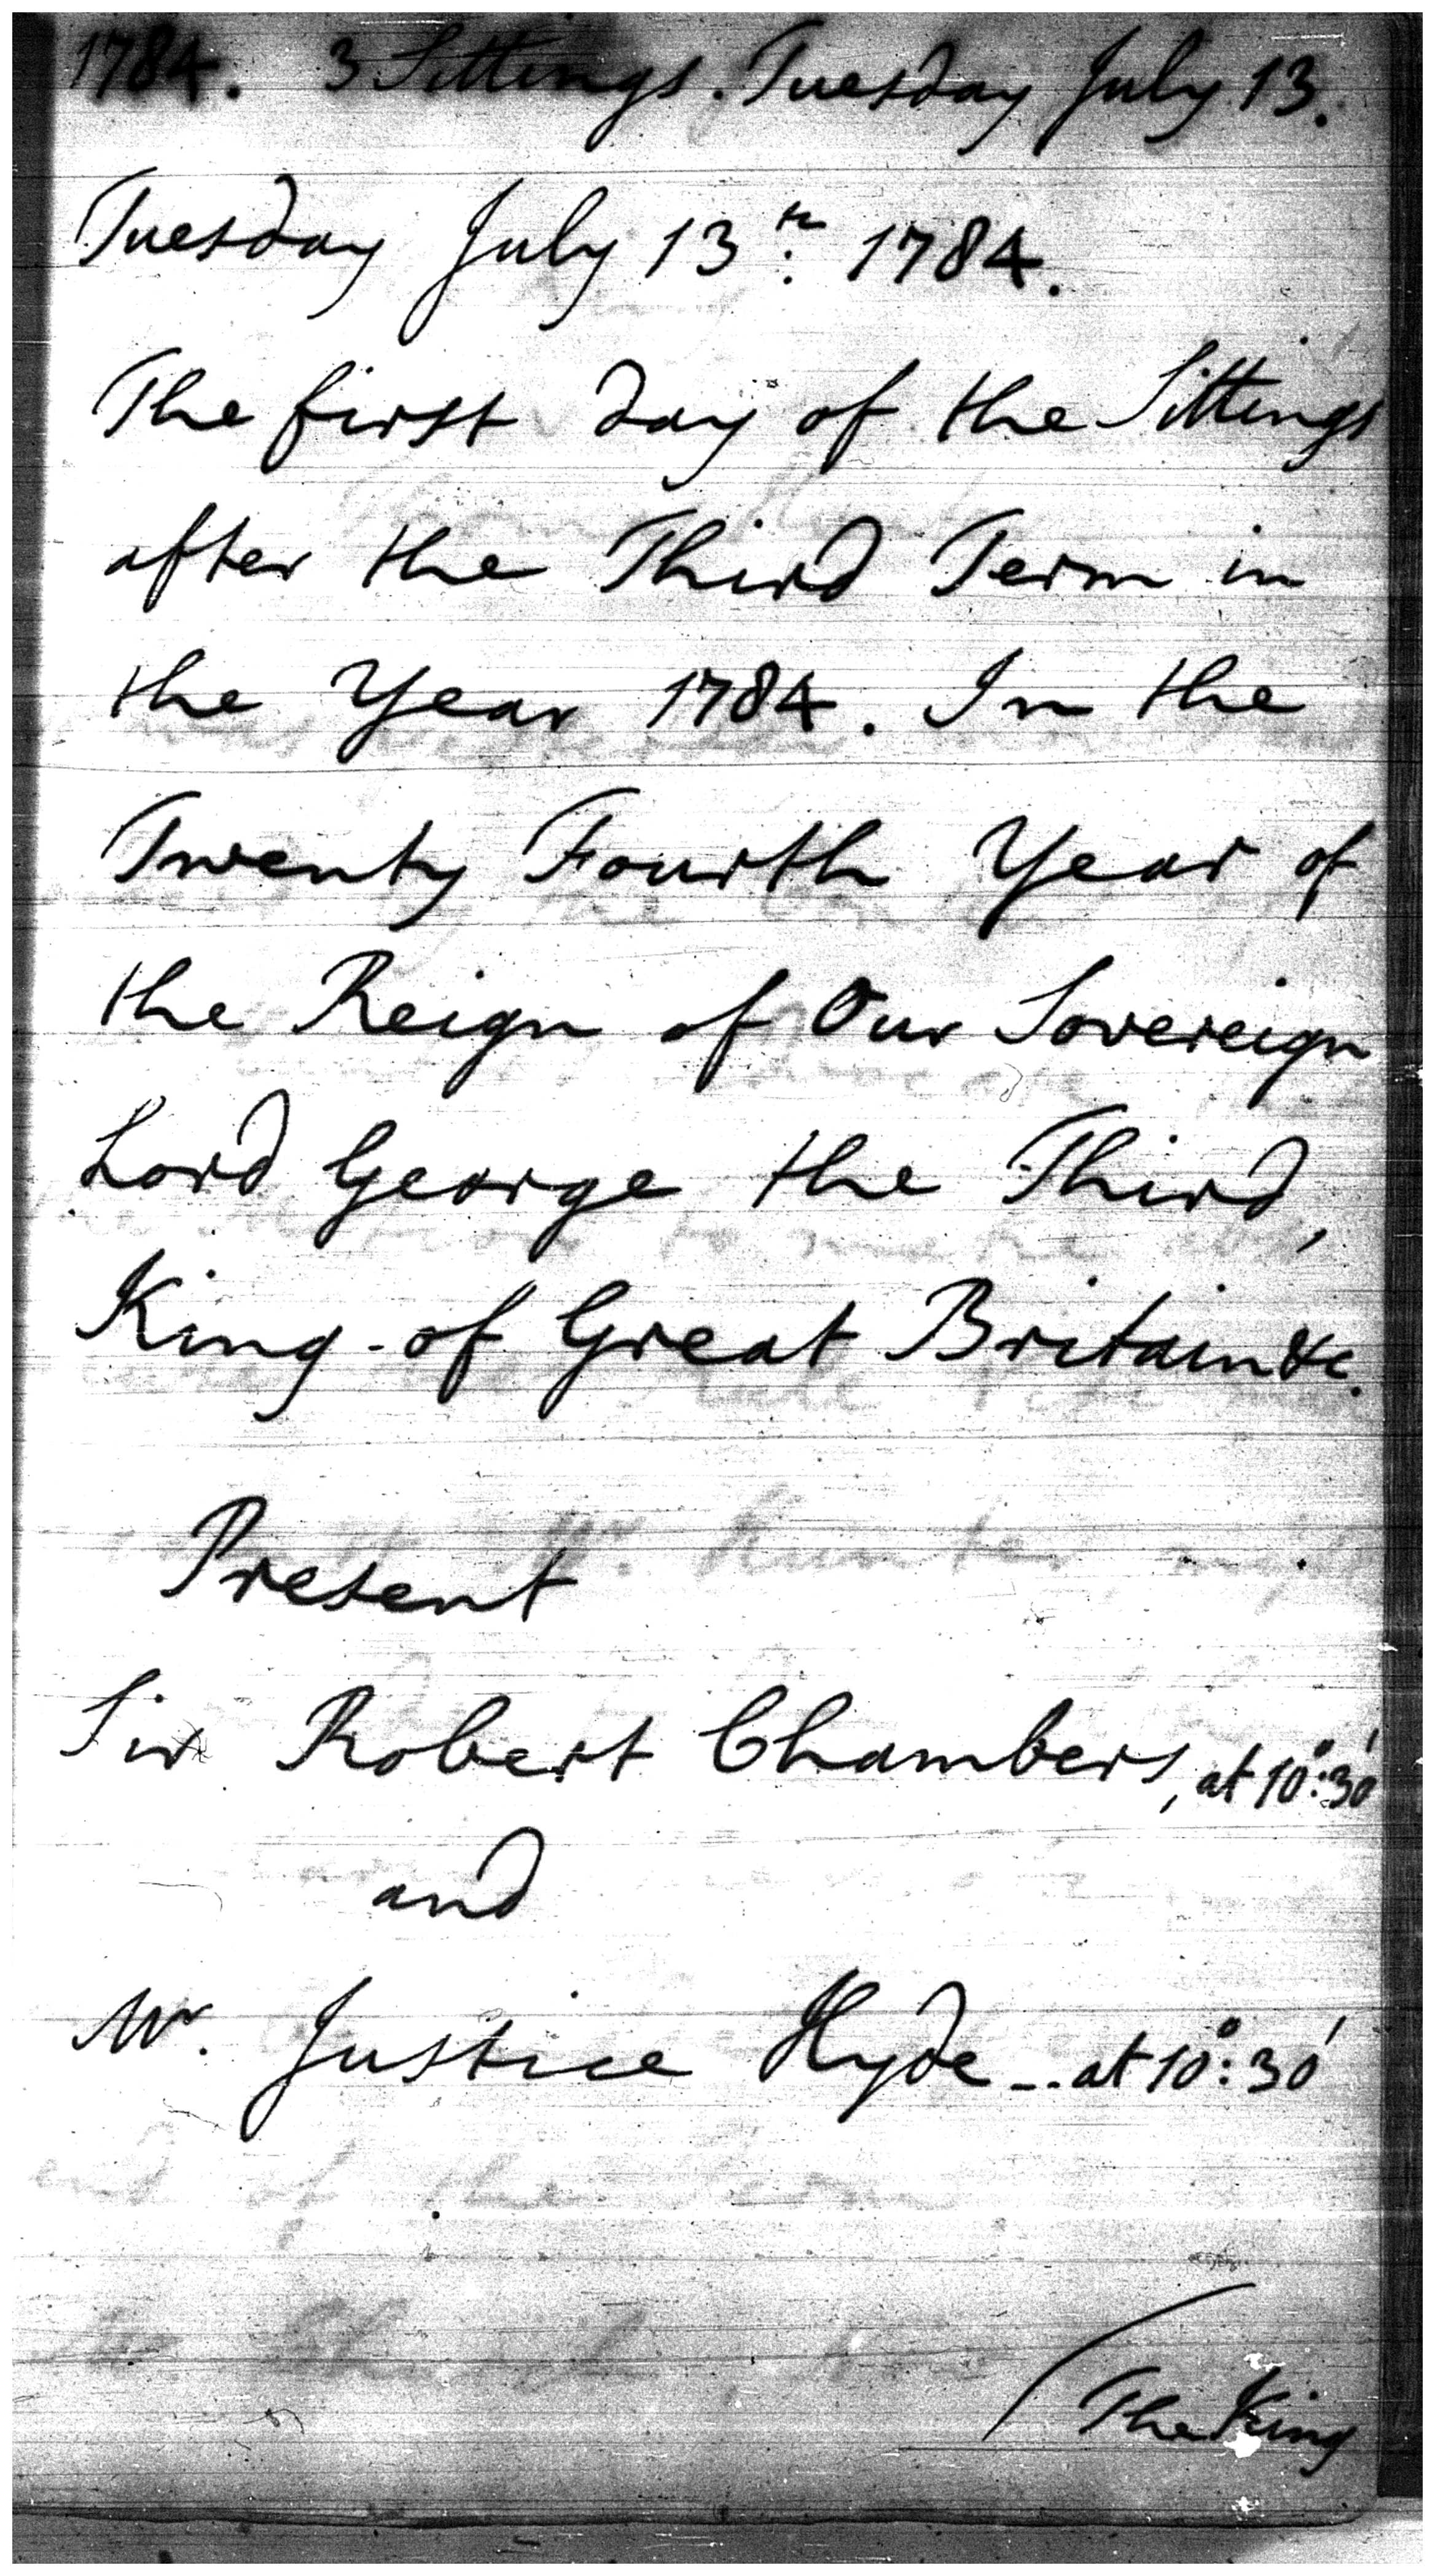 1784. 3 Sittings. Tuesday July 13.
Tuesday July 13th. 1784.
The first day of the Sittings
after the Third Term in
the Year 1784. In the
Twenty Fourth Year of
the Reign of Our Sovereign
Lord George the Third,
King of Great Britain &c.
Present
Sir Robert Chambers, at 10°:30'
and
Mr. Justice Hyde -- at 10°:30'
The King